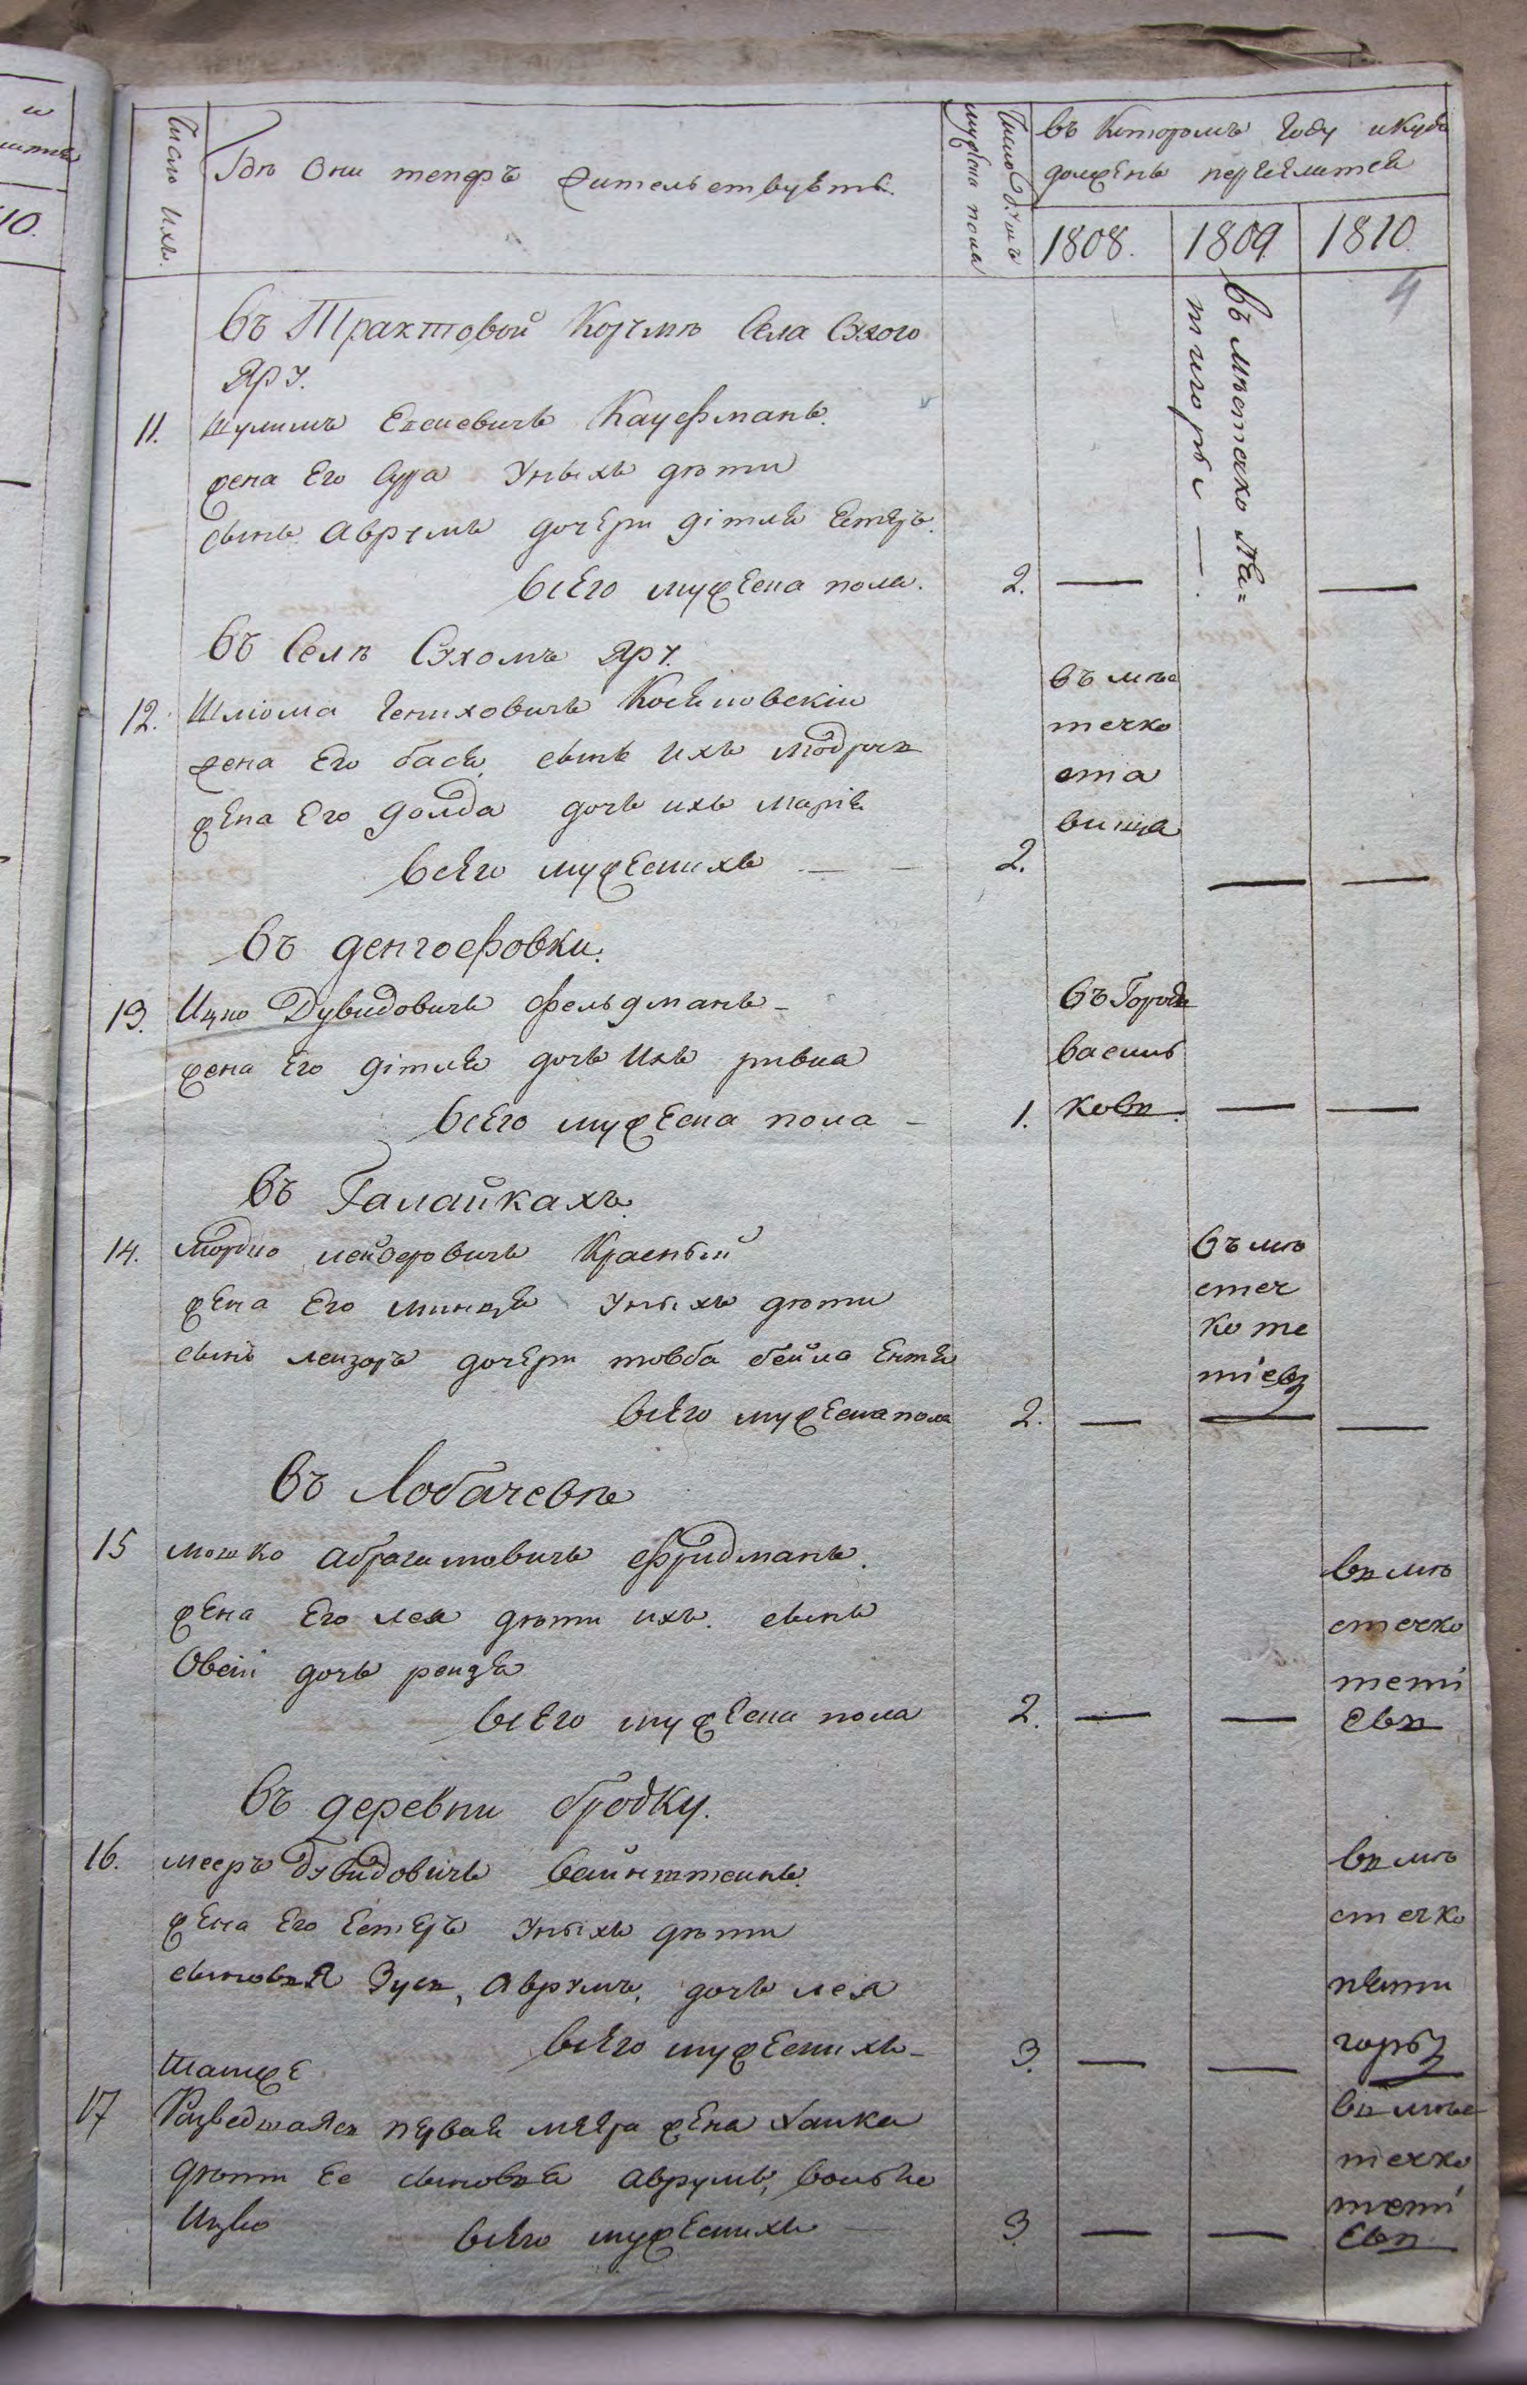 Число ихъ.
Гдѣ Они теперъ жительствуютъ.
Число душъ
мужеска пола
въ Которомъ Году икуда
долженъ переселится
1808.
1809
1810
4
въ Трактовой Корчмѣ Села Сухого
Яру.
11.
Шулимъ Еселевичъ Кауфманъ.
жена Его Сура Уныхъ дѣти
сынъ Аврумъ дочери дітля Естеръ.
всего мужеска пола.
2.
въ мѣстечко Пя=
тигоры
въ Селѣ Сухомъ Яру.
12.
Шліома Гениховичъ
жена Его бася, сынъ ихъ
жена Его Голда дочь ихъ марія
всего мужескихъ
2.
въ мѣс
течко
ста
вища
въ денгофовки.
13.
Ицко Дувидовичъ фельдманъ
жена Его дітля дочь ихъ ривка
всего мужеска пола
1.
въ Городъ
василь
ковъ
въ Галайкахъ.
14.
Мордко лейзеровичъ Красный
жена Его минця Уныхъ дѣти
сынъ лейзоръ дочери товба бейла Ентя
всего мужеска пола
2.
въ мѣ
стеч
ко те
тіевъ
въ Лобачевъ
15
мошко абрагамовичъ фридманъ.
жена Его лея дѣти ихъ. сынъ
Овсій дочь рейзя
всего мужеска пола
2.
въ мѣ
стечко
теті
евъ
въ деревни бродку.
16.
мееръ Дувидовичъ вайнштейнъ.
жена Его Естеръ Уныхъ дѣти
сыновья Зусь, Аврумъ, дочь лея
всего мужескихъ
3.
въ мѣ
стечко
пяти
горы
Тамже
17
Розведшаяся первая меера жена Хайка
дѣти Ее сыновья аврумъ, волько
Ицко
всего мужескихъ
3.
въ мѣс
течко
теті
евъ